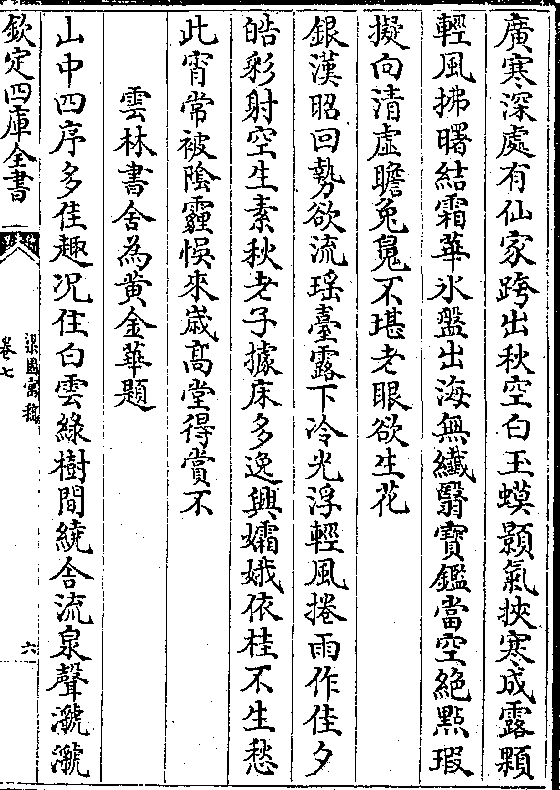 廣寒深處有仙家跨出秋空白玉蟆顥氣挾寒成露顆
輕風拂曙結霜華氷盤出海無纎翳寳鑑當空絶點瑕
擬向清虛瞻兔不堪老眼欲生花
銀漢昭回勢欲流瑶臺露下冷光浮輕風捲雨作佳夕
皓彩射空生素秋老子據床多逸興孀娥依桂不生愁
此宵常被陰霾悞來嵗髙堂得賞不
雲林書舍為黄金華題
山中四序多佳趣况住白雲緑樹間繞舍流泉聲㶁㶁
欽定四庫全書
梁園寓稿
卷七
六